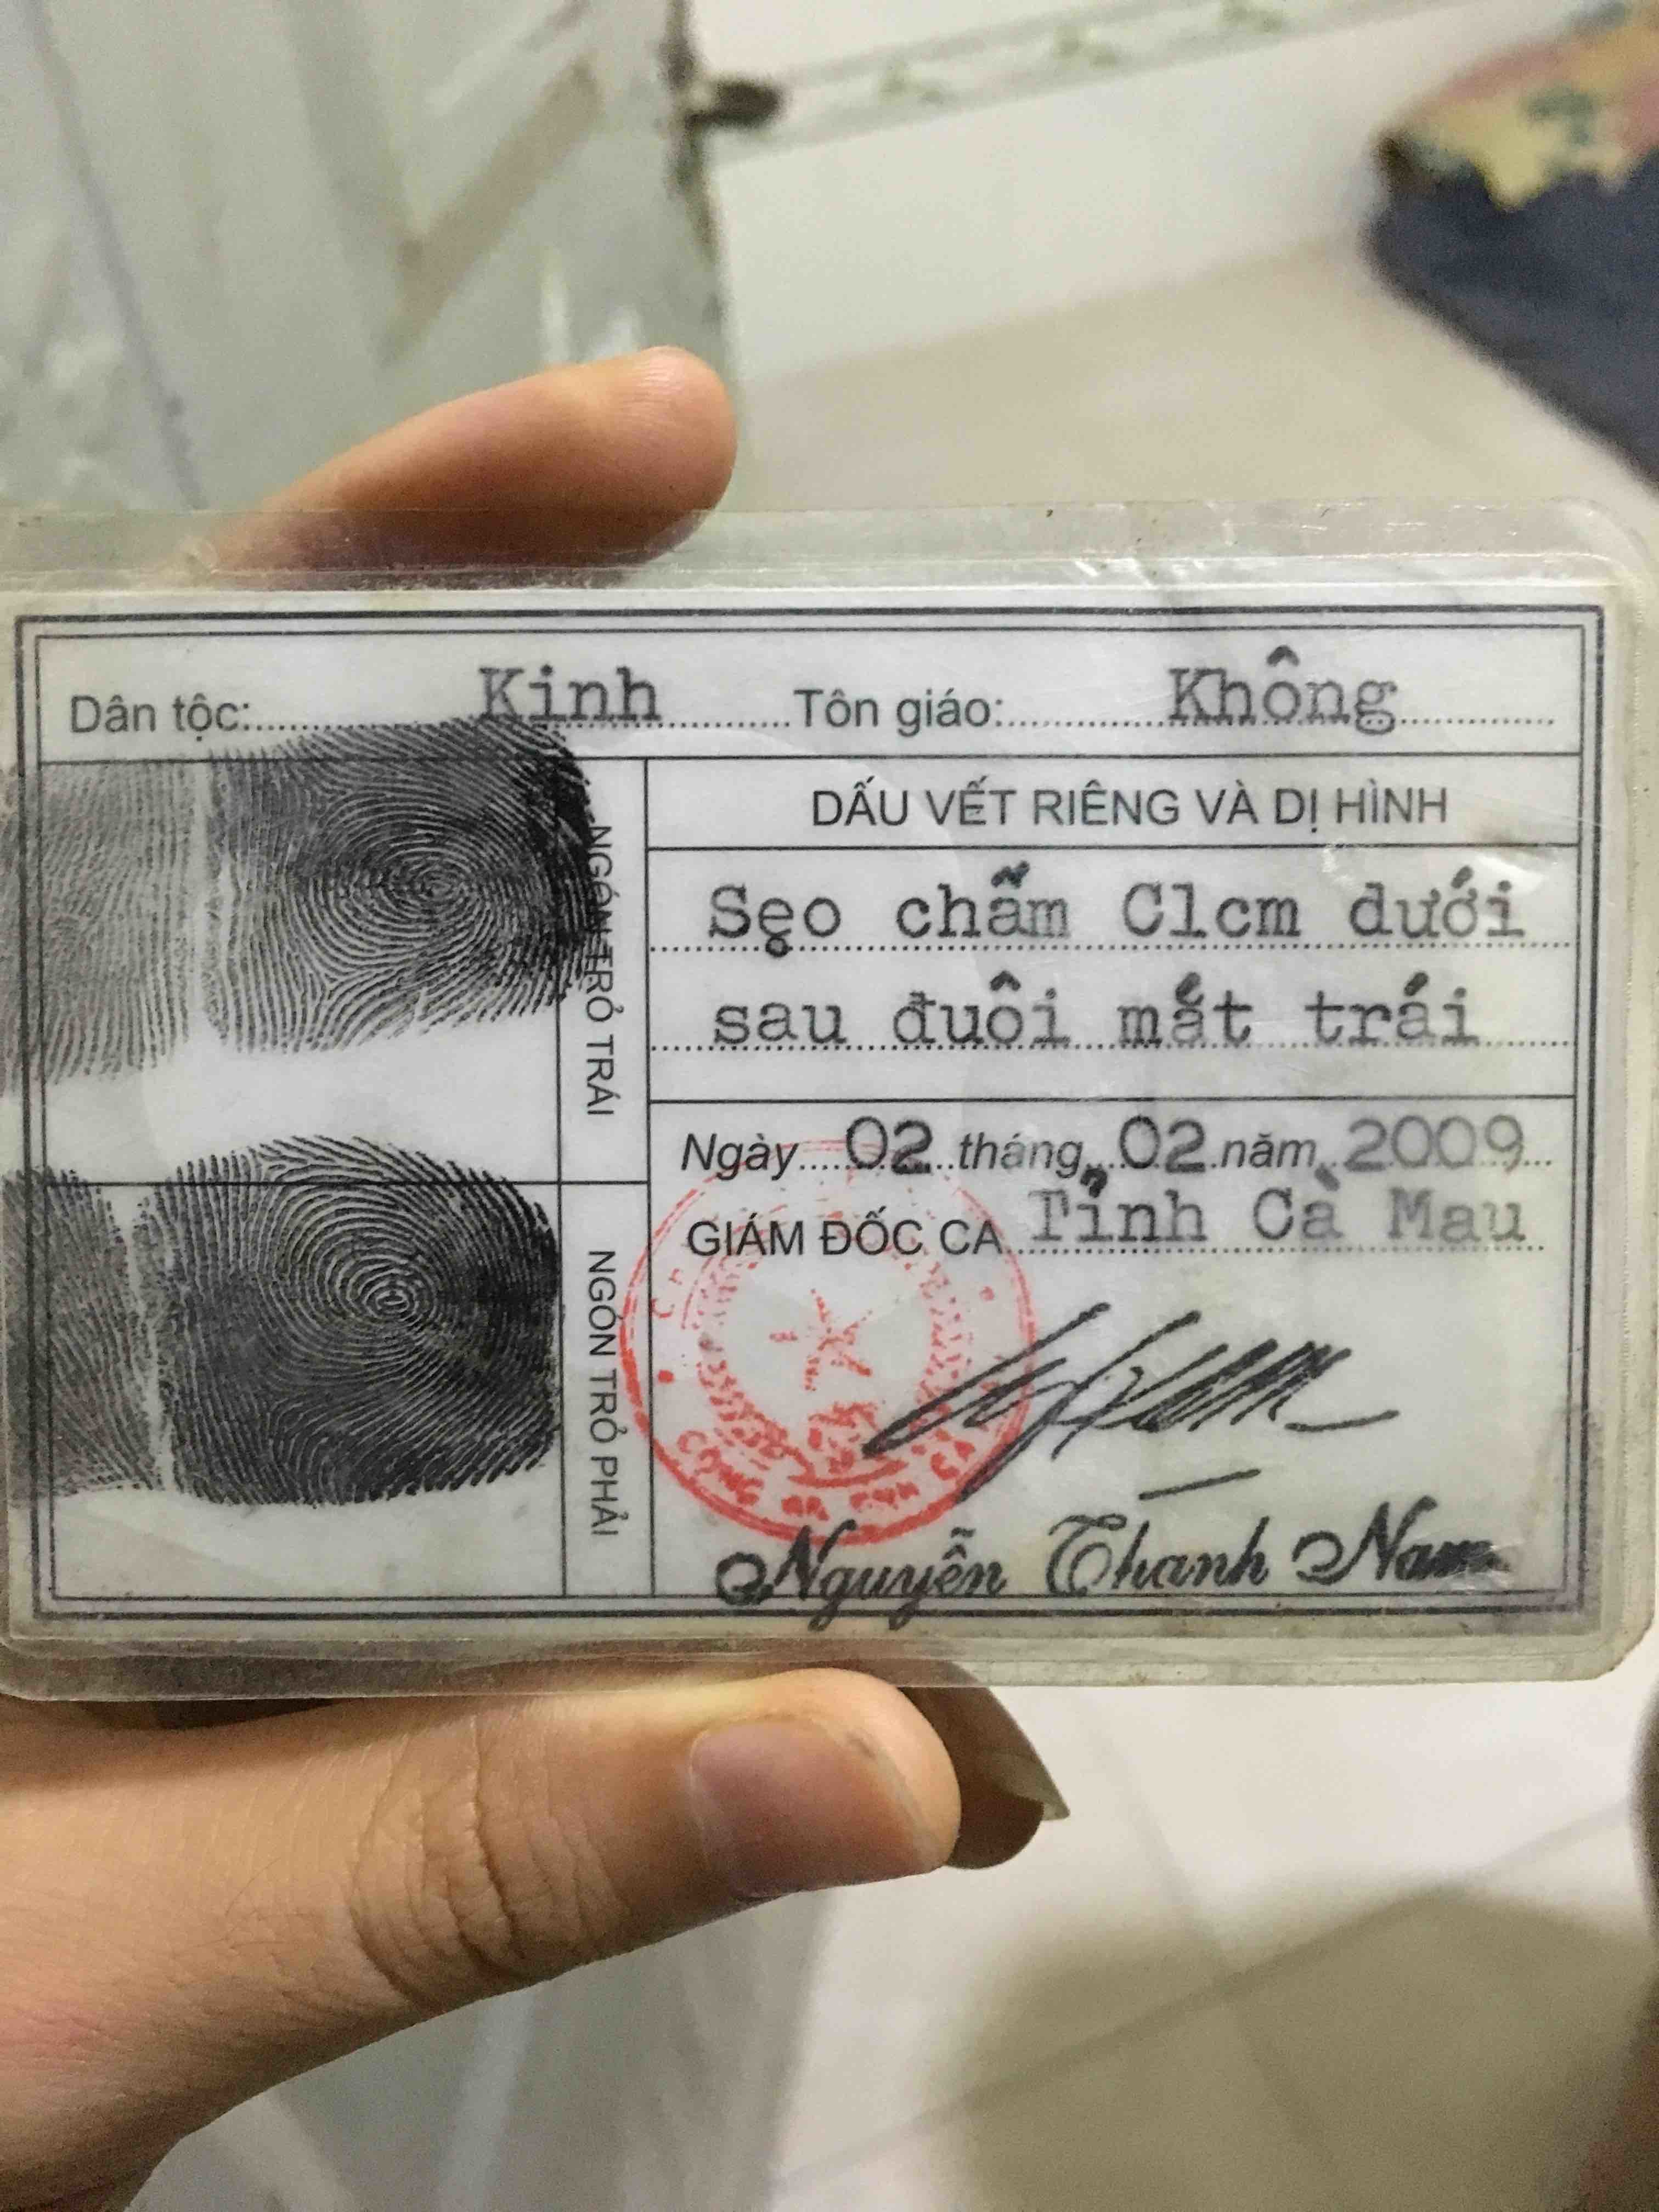 Dân tộc: Kinh Tôn giáo: Không
NGÓN TRỎ TRÁI
DẤU VẾT RIÊNG VÀ DỊ HÌNH
Sẹo chấm C1cm dưới
sau đuôi mắt trái
NGÓN TRỎ PHẢI
Ngày 02 tháng 02 năm 2009
GIÁM ĐỐC CA Tỉnh Cà Mau
CÔNG AN
Nguyễn Thanh Nam